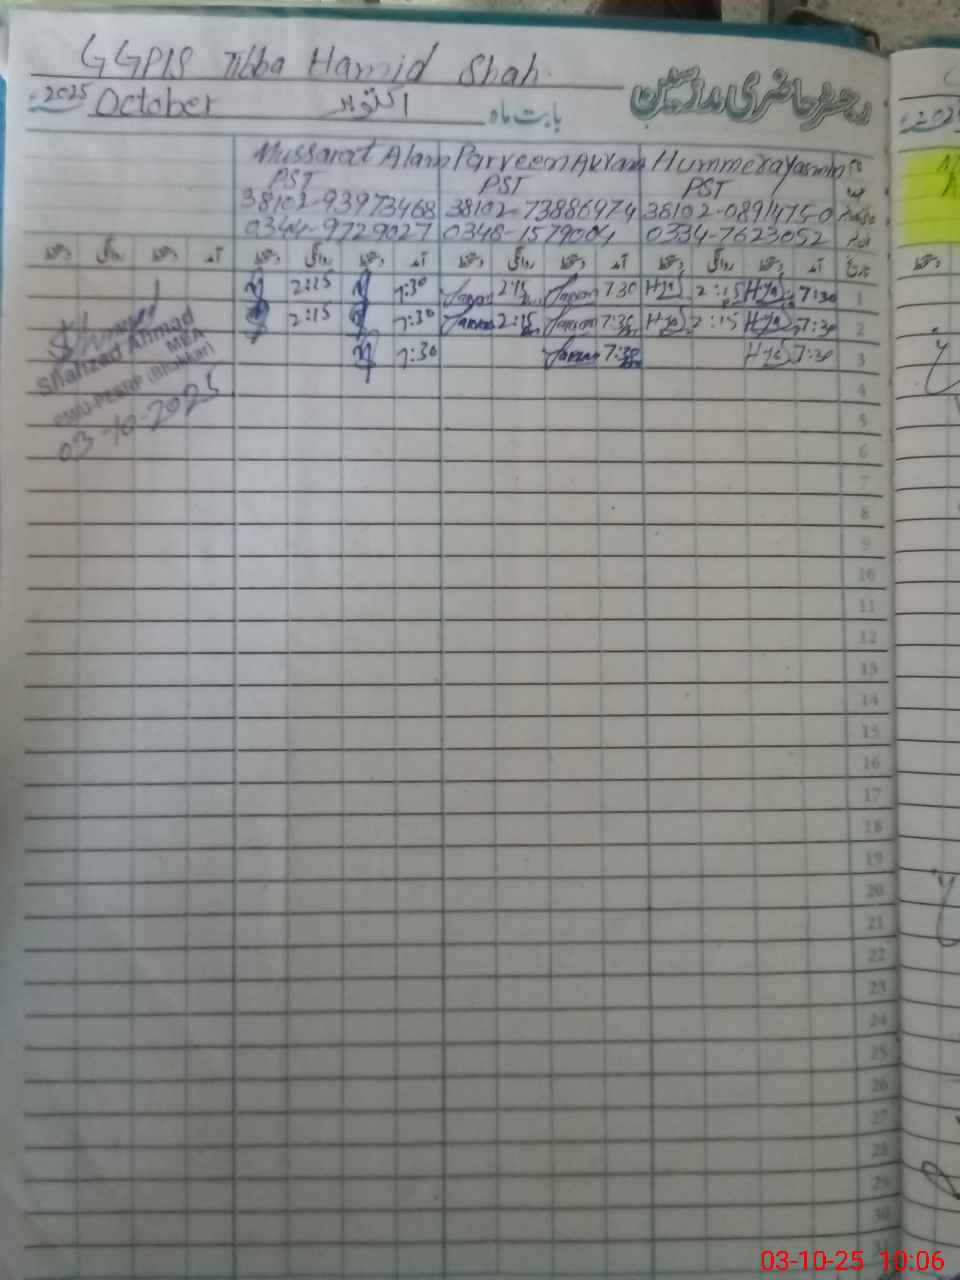 GGPIS Tibba Hamid Shah.
رجسٹر حاضری مدرسین
بابت ماہ اکتوبر October 2025
Mussarat Alam Parveen Akram Hummera Yasmin
PST PST PST
38102-93973468 38102-73886974 38102-08914750
0344-9729027 0348-1579004 0334-7623052
دستخط روانگی دستخط آمد دستخط روانگی دستخط آمد دستخط روانگی دستخط آمد دستخط روانگی دستخط آمد تاریخ
2:15 7:30 2:15 7:30 2:15 7:30 1
2:15 7:30 2:15 7:30 2:15 7:30 2
7:30 7:30 7:30 3
Shahzad Ahmad
MEA
PMU-PESRP (Bhakkar)
03-10-2025
4
5
6
7
8
9
10
11
12
13
14
15
16
17
18
19
20
21
22
23
24
25
26
27
28
29
30
31
03-10-25 10:06